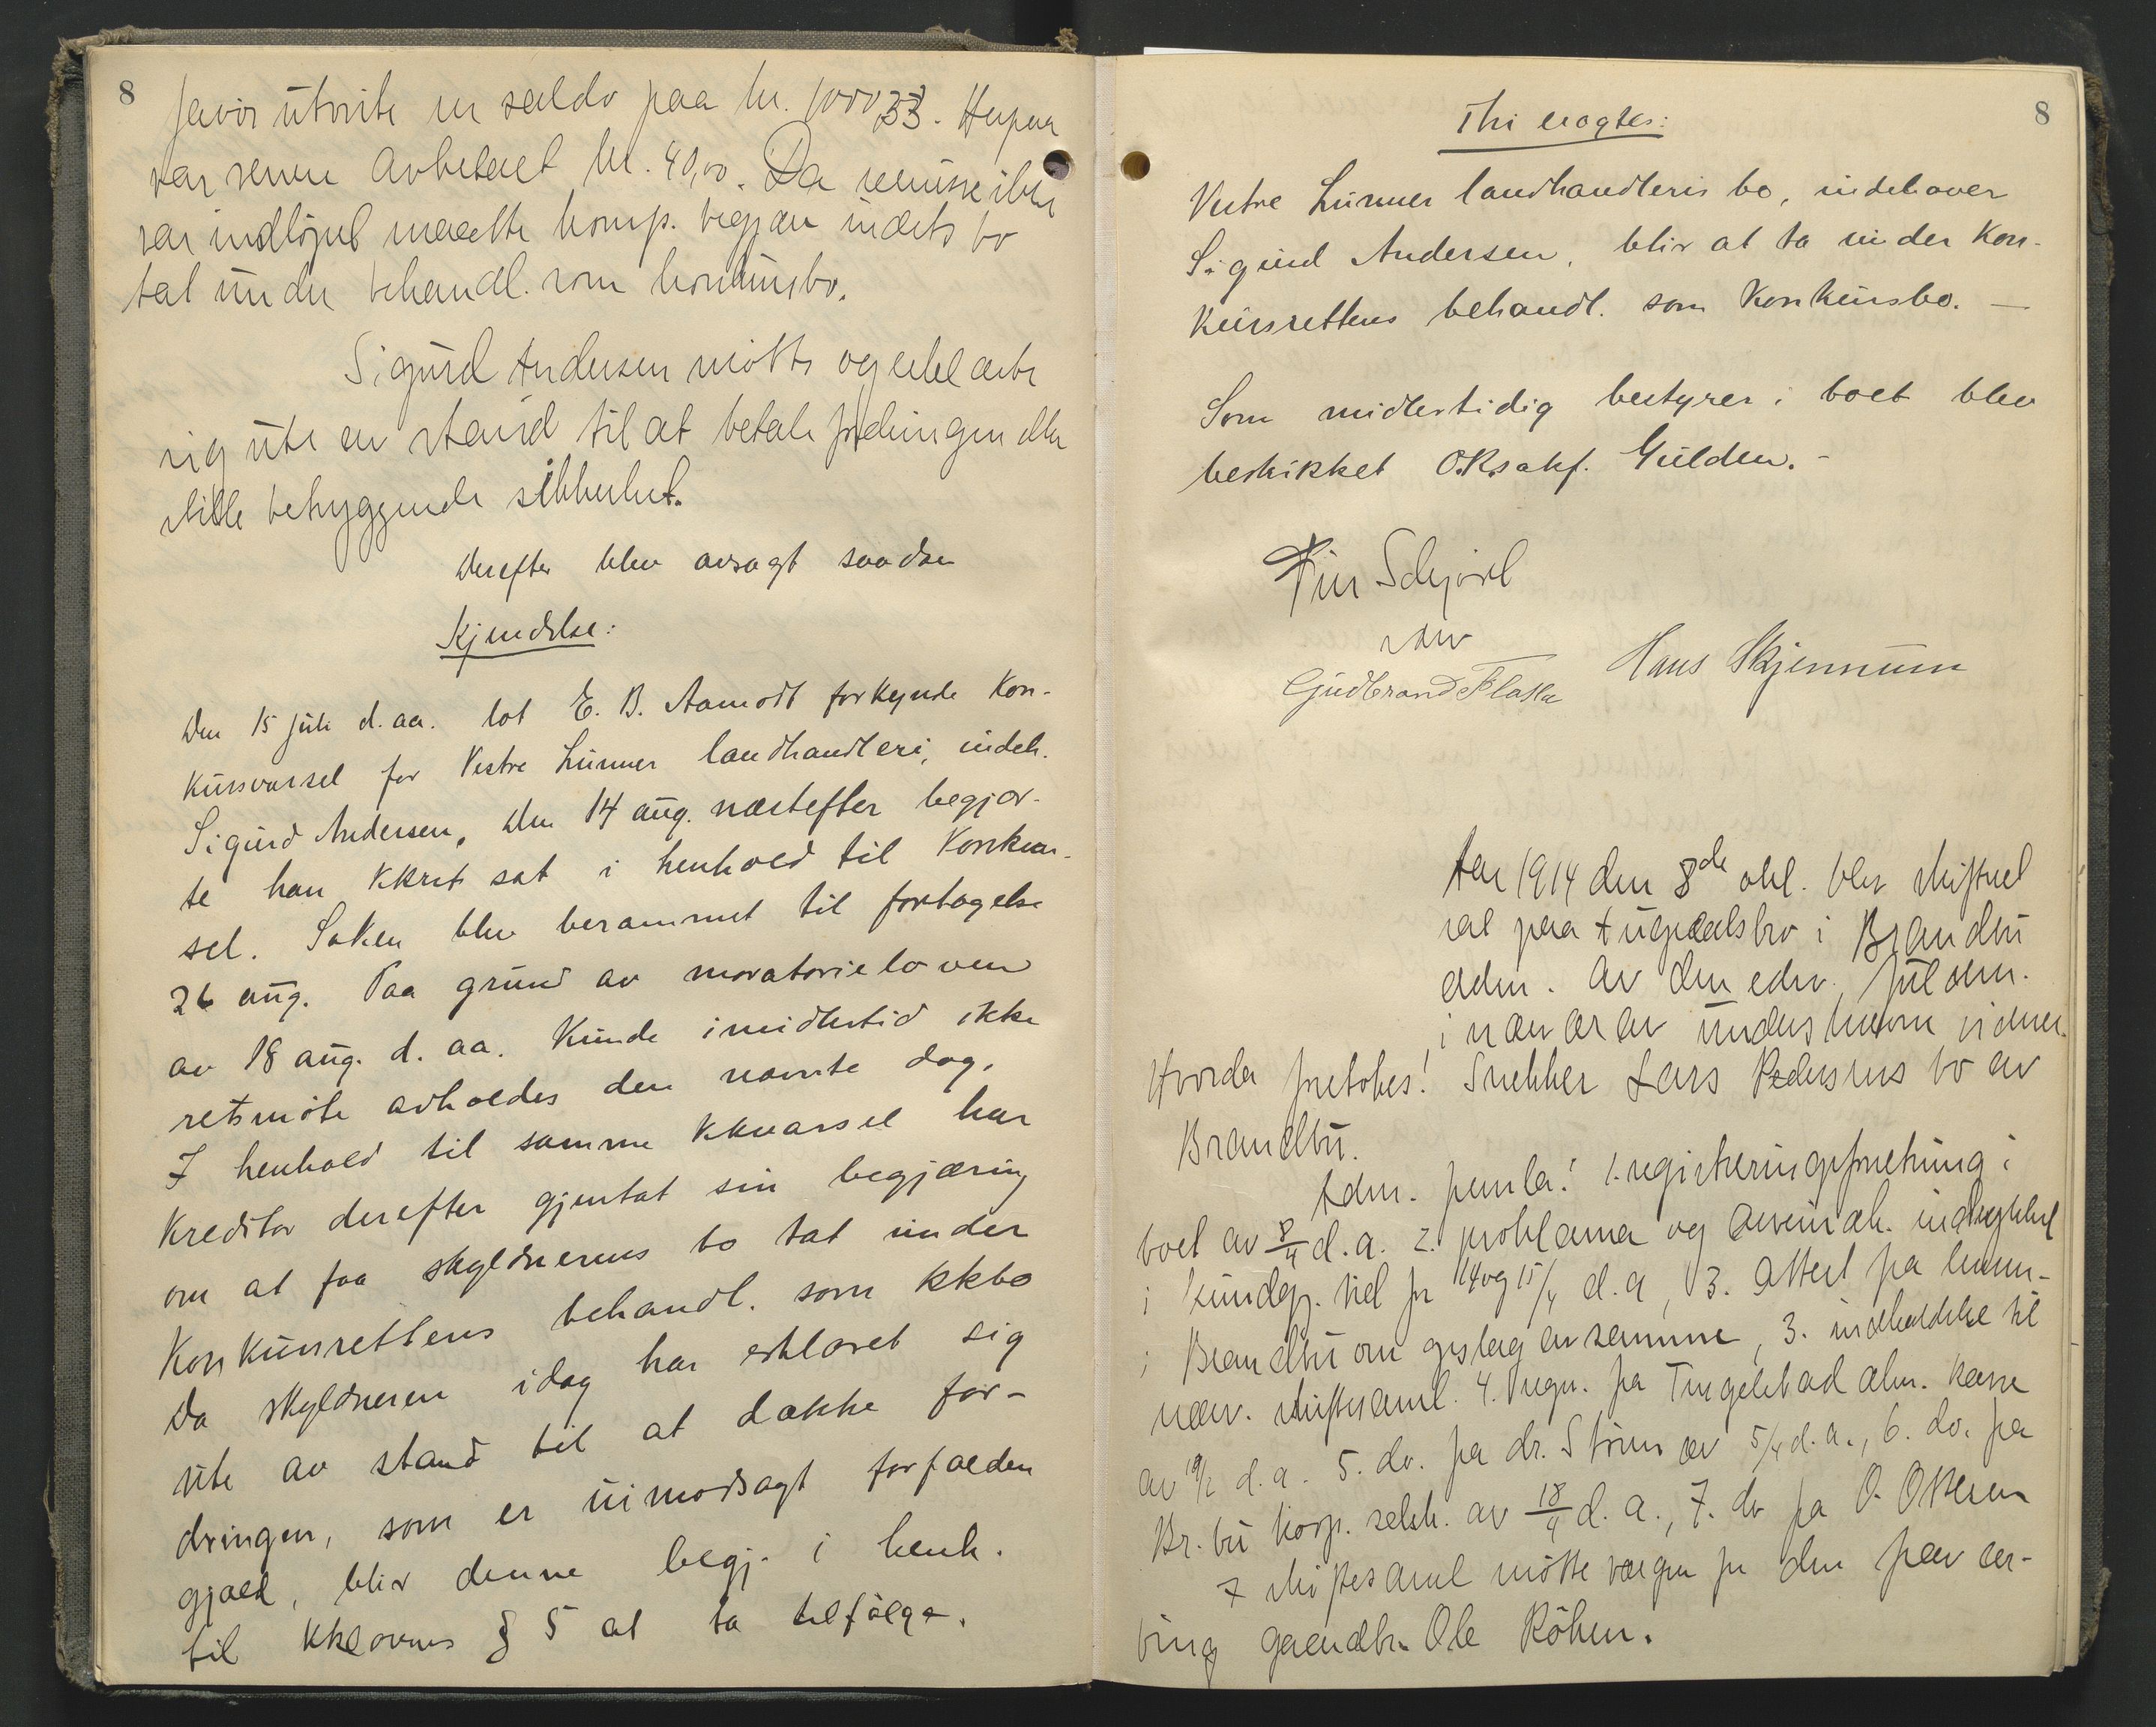 8
herav utviste en saldo paa kr. 1000,33. Herpaa
var senere avbetalt kr. 40,00. Da
var indløpet maatte komp. begjære indets bo
tat under behandl. som konkursbo.
Sigurd Andersen møtte og erklærte
sig ute av stand til at betale fordringen eller
stille betryggende sikkerhet.
Derefter blev avsagt saadan
Kjendelse:
Den 15 juli d. aa. lot E. B. Aamodt forkynde Kon-
kursvarsel for Vestre Lunner landhandleri, indeh.
Sigurd Andersen, den 14 aug. næstefter begjær-
te han sat i henhold til Konkurs-
sel. Saken blev berammet til foretagelse
26 aug. Paa grund av moratorieloven
av 18 aug. d. aa. kunde imidlertid ikke
retsmøte avholdes den nævnte dag.
I henhold til samme kkvarsel har
Kreditor derefter gjentat sin begjæring
om at faa skyldnerens bo tat under
Konkursrettens behandl. som kkbo
Da skyldneren idag har erklæret sig
ute av stand til at dække for-
dringen, som er uimotsagt forfalden
gjæld, blir denne begj. i henh.
til kklovens § 5 at ta tilfølge.
8
Thi eragtes:
Vestre Lunner landhandleris bo, indehaver
Sigurd Andersen, blir at ta under Kon-
kursrettens behandl. som Konkursbo. —
Som midlertidig bestyrer i boet blev
beskikket O.R.sakf. Gulden. -
Finn Schjøll
Hans Skjennum
Gudbrand Flatla
Aar 1914 den 8de okt. blev skifteret
sat paa Augedalsbro i Brandbu
adm. av den edsv. fuldm.
i nærvær av underskrevne vidner.
Hvorda foretokes: Snekker Lars Pedersens bo av
Brandbu.
Adm. fremla: 1. registreringsforretning i
boet av 8/4 d.a. 2. proklama og indrykket
i kundgj. tid for 14 og 15/4 d.a, 3. Attest fra lensm.
i Brandbu om opslag av samme, 3. indkaldelse til
nærv. skiftesaml. 4. regn. fra Tingelstad alm. kasse
av d.a. 5. do. fra dr. Strøm av 5/4 d.a., 6. do. fra
Br.bu selsk. av 18/4 d.a., 7. do fra O.
I skiftesaml møtte værgen for den
ving gaardbr. Ole Røken.